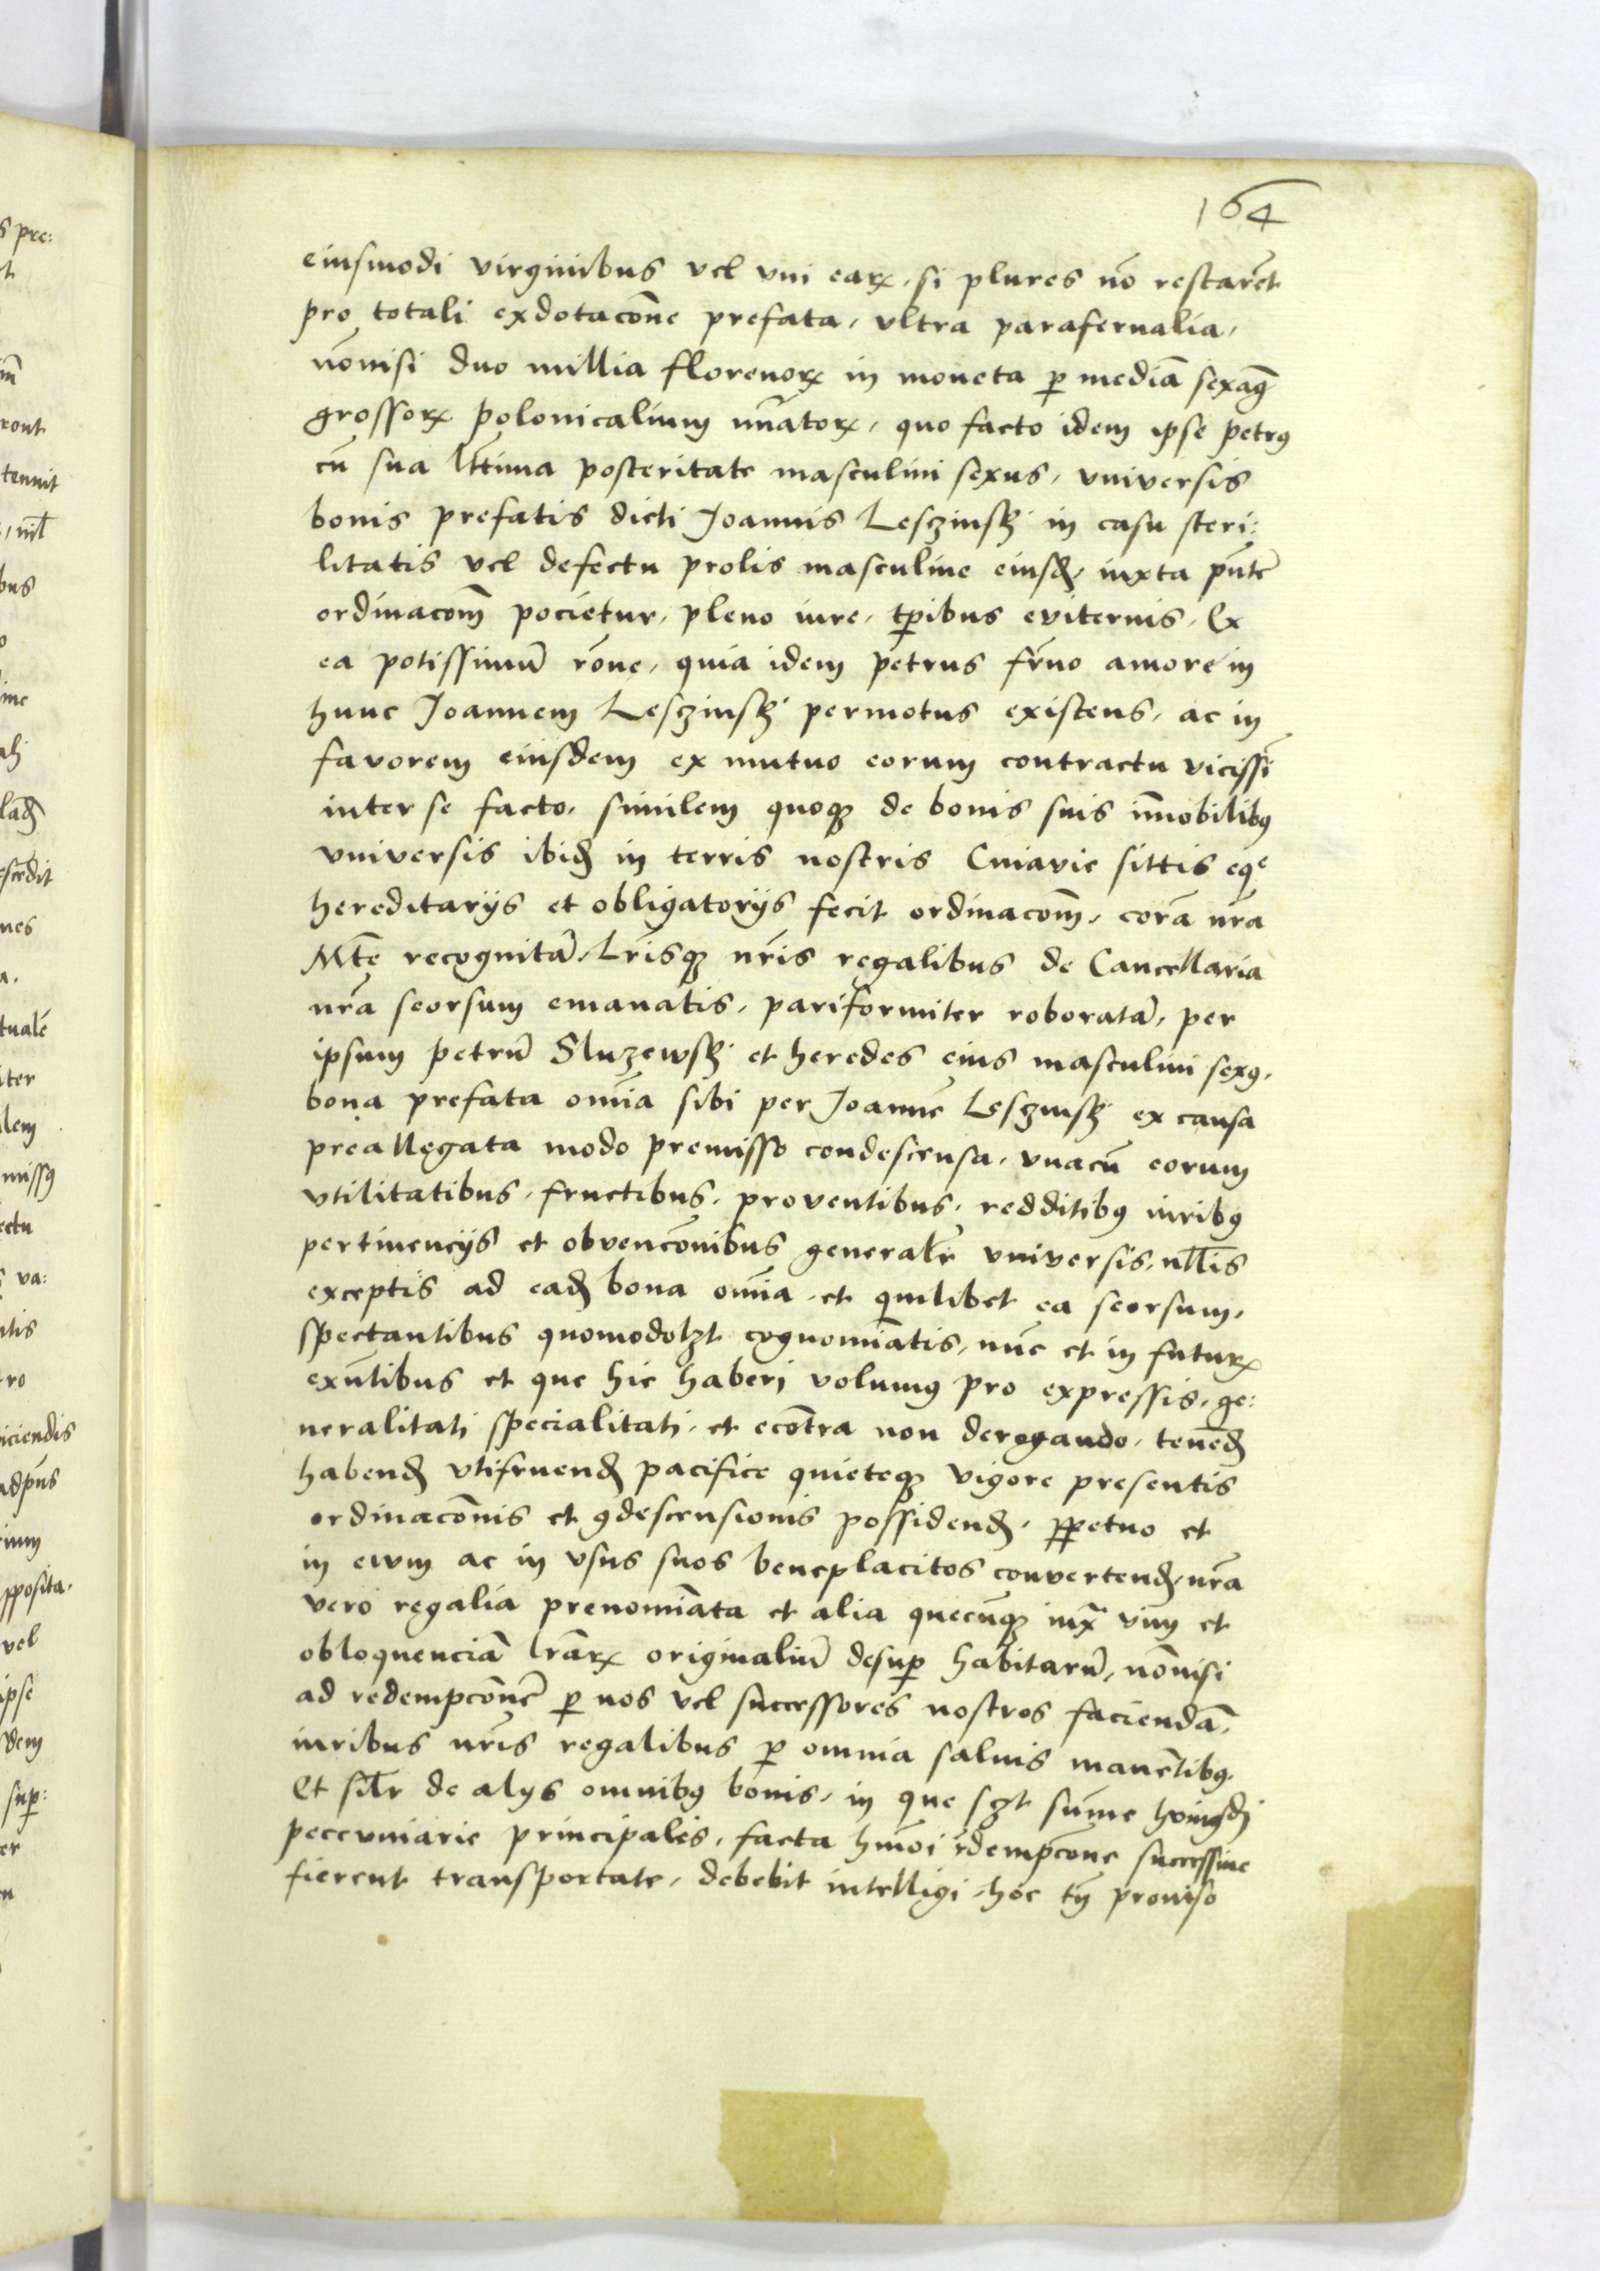 164
eiusmodi virginibus vel vni earꝝ, si plures nō restarēt
pro totali exdotacōne prefata, vltra parafernalia,
nōnisi duo millia florenorꝝ in moneta ꝑ mediā sexāg
grossorꝝ polonicalium nūatorꝝ, quo facto idem ipse petrꝰ
cū sua l̄ttima posteritate masculini sexus, vniversis
bonis prefatis dicti Joannis Lesczinsꝶ in casu steri:
litatis vel defectu prolis masculine eiusd, iuxta pn̄tē
ordinacōm pocietur, pleno iure, tꝑibus eviternis, Ex
ea potissimū rōne, quia idem petrus fr̄no amore in
hunc Joannem Lesczinsꝶ permotus existens, ac in
favorem eiusdem ex mutuo eorum contractu vicissī
inter se facto, similem quoqꝫ de bonis suis īmobilibꝰ
vniversis ibid in terris nostris Cuiavie sittis eqᵉ
hereditarijs et obligatorijs fecit ordinacōm, corā nr̄a
Mt̄e recognitā, Lr̄isqꝫ nr̄is regalibus de Cancellaria
nr̄a seorsum emanatis, pariformiter roboratā, per
ipsum petrū Sluzewsꝶ et heredes eius masculini sexꝰ,
bona prefata om̄ia sibi per Joannē Lesczinsꝶ ex causa
preallegata modo premisso condescensa, vnacū eorum
vtilitatibus, fructibus, proventibus, redditibꝰ iuribꝰ
pertinencijs et obvencōnibus generalr̄ vniversis, nll̄is
exceptis ad ead bona om̄ia et quilibet ea seorsum,
spectantibus quomodolꝫt cognomīatis, nūc et in futurꝝ
exn̄tibus et que hic haberi volumꝰ pro expressis, ge:
neralitati specialitati, et ecōtra non derogando, tenēd
habend vtifruend pacifice quieteqꝫ vigore presentis
ordinacōnis et ꝯdescensionis possidend, ꝑpetuo et
in ewm ac in vsus suos beneplacitos convertend, nr̄a
vero regalia prenomīata et alia quecūqꝫ iux̄ vim et
obloquenciā lr̄arꝝ originaliū desuꝑ habitarū, nōnisi
ad redempcōnē ꝑ nos vel successores nostros faciendā,
iuribus nr̄is regalibus ꝑ omnia salvis manētibꝰ.
Et silr̄ de alijs omnibꝰ bonis, in que sꝫt sūme
pecuniarie principales, facta hmōi rdempcōne successive
fierent transportate, debebit intelligi, hoc tn̄ proviso